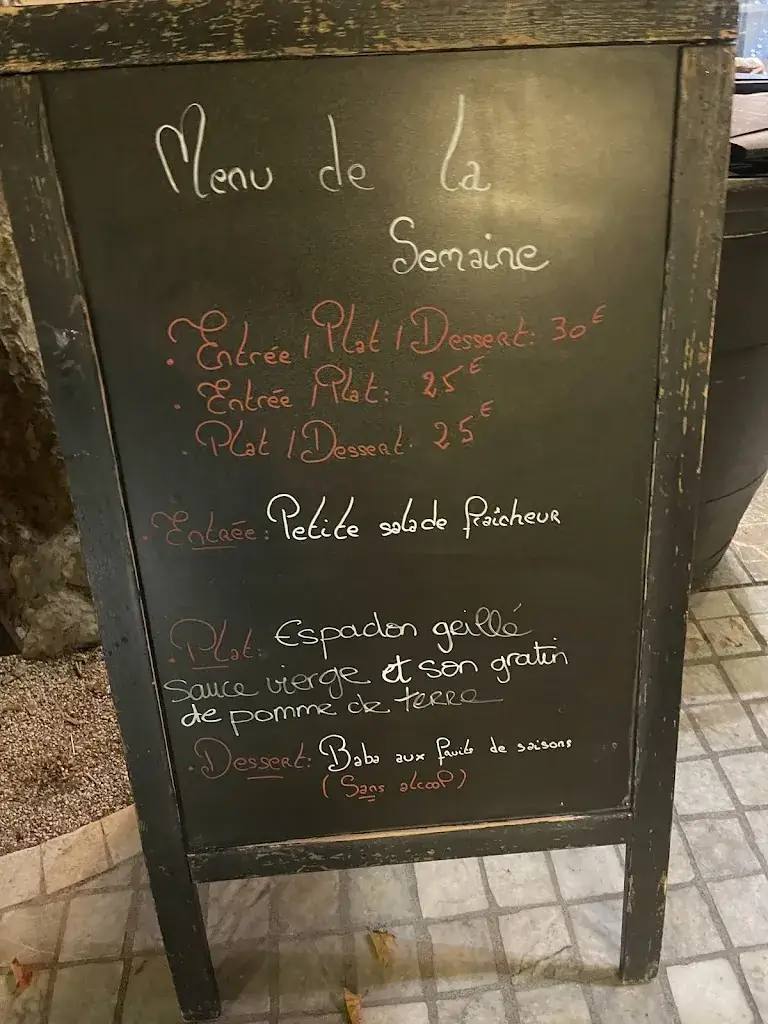 Menu de la
Semaine
• Entrée / Plat / Dessert: 30€
• Entrée / Plat: 25€
• Plat / Dessert: 25€
• Entrée: Petite salade fraîcheur
• Plat: Espadon grillé
sauce vierge et son gratin
de pomme de terre
• Dessert: Baba aux fruits de saisons
(Sans alcool)